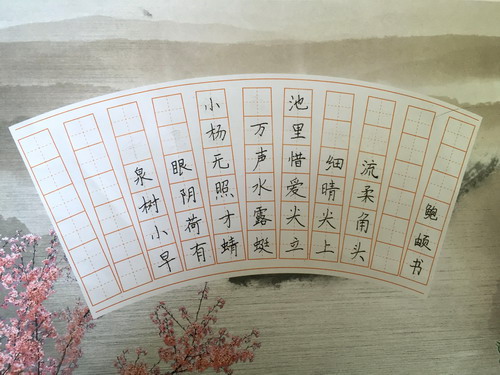 小池
杨万里
泉眼无声惜细流
树阴照水爱晴柔
小荷才露尖尖角
早有蜻蜓立上头
鲍 书